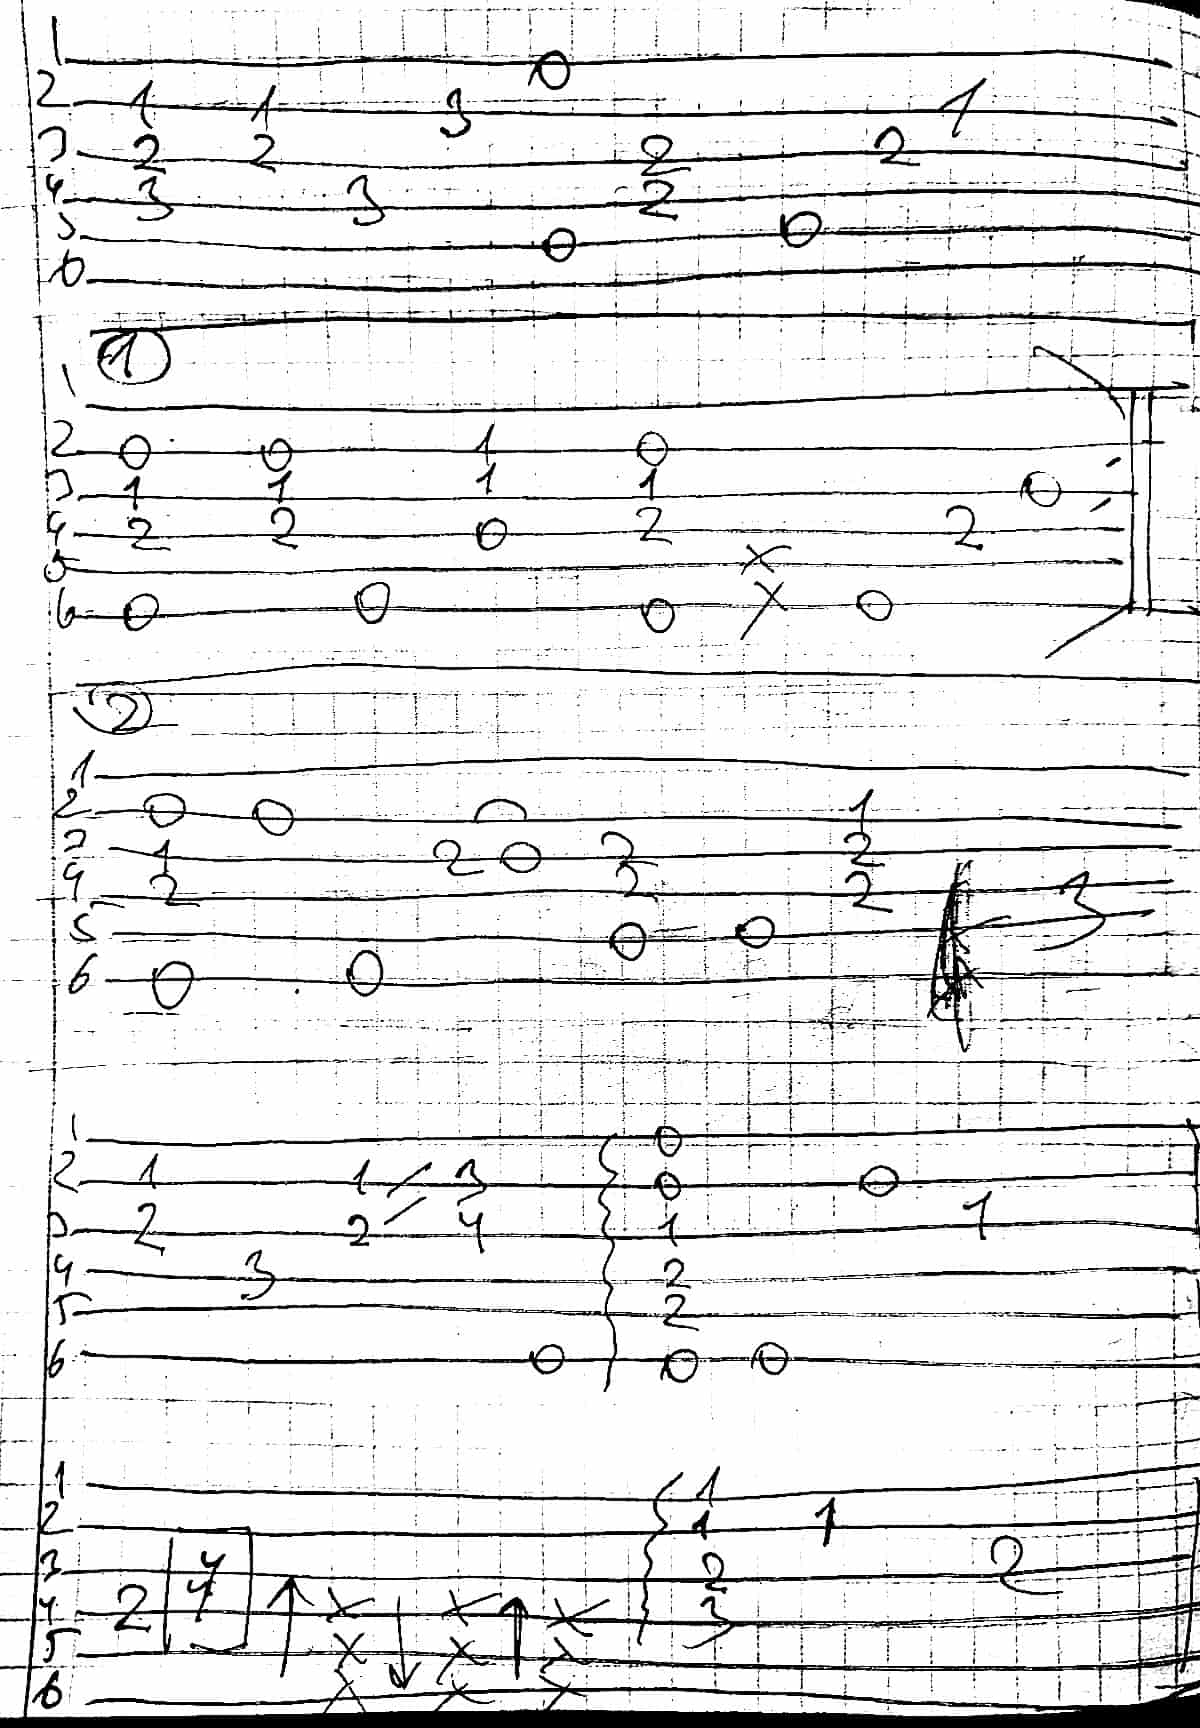 1 0
2 1 1 3 1
3 2 2 2 2
4 3 3 2
5 0 0
6
1
1
2 0 0 1 0
3 1 1 1 1 0
4 2 2 0 2 2
5 x
6 0 0 0 x 0
2
1
2 0 0 1
3 1 2 0 2 2
4 2 2 2
5 0 0 3
6 0 0
1 0
2 1 1 / 3 0 0
3 2 2 / 4 1 1
4 3 2
5 2
6 0 0 0
1 1
2 1 1
3 4 2 2
4 2 4 ↑ x ↓ x ↑ x 3
5 x x x
6 x x x